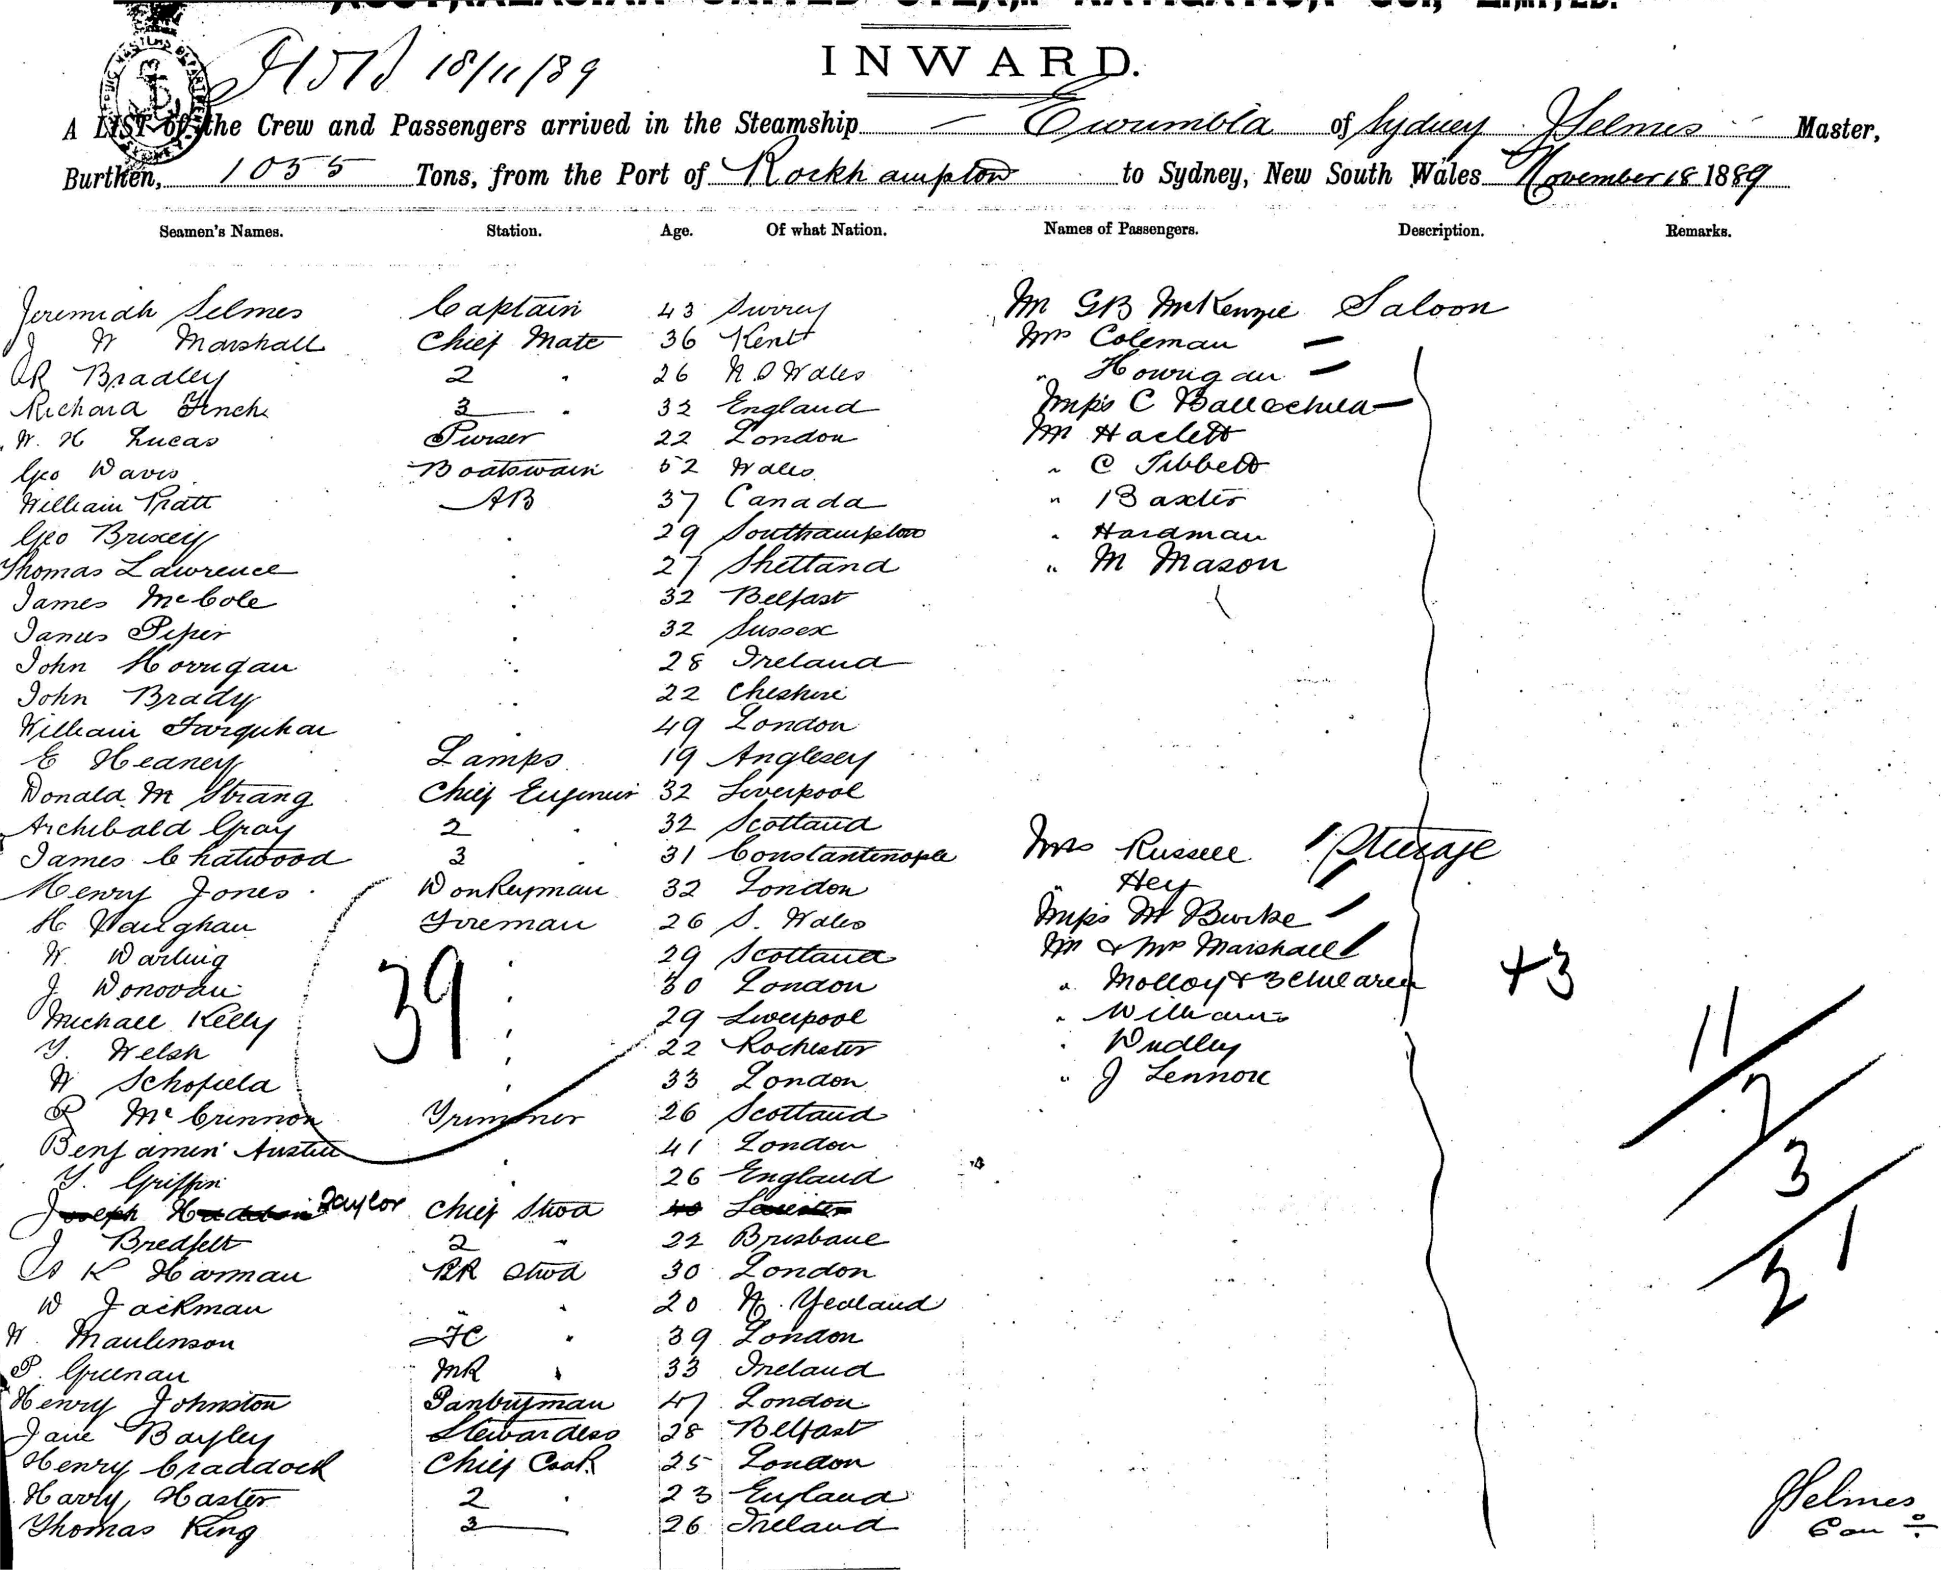 AUSTRALASIAN UNITED STEAM NAVIGATION CO., LIMITED.
INWARD.
18/11/89
A LIST of the Crew and Passengers arrived in the Steamship Eurumbla of Sydney J Selmes Master,
Burthen, 1055 Tons, from the Port of Rockhampton to Sydney, New South Wales November 18 1889
Seamen's Names. Station. Age. Of what Nation. Names of Passengers. Description. Remarks.
Jeremiah Selmes Captain 43 Surrey Mr GB McKenzie Saloon
J W Marshall Chief Mate 36 Kent Mrs Coleman
Bradley 2 " 26 N.S Wales " Horrigan
Richard Finch 3 " 32 England Miss C
W. H Lucas Purser 22 London Mr Haclett
Geo Davis Boatswain 52 Wales " C Tibbett
William Pratt AB 37 Canada " Baxter
Geo Brixey " 29 Southampton " Hardman
Thomas Lawrence " 27 Shetland " M Mason
James McCole " 32 Belfast
James Piper " 32 Sussex
John Horrigan " 28 Ireland
John Brady " 22 Cheshire
William Farquhar 49 London
E Heaney Lamps 19 Anglesey
Donald M Strang Chief Engineer 32 Liverpool
Archibald Gray 2 " 32 Scotland
James Chatwood 3 " 31 Constantinople Mrs Russell Steerage
Henry Jones Donkeyman 32 London " Hey
H Vaughan Fireman 26 S. Wales Miss M Burke
W. Darling " 29 Scotland Mr & Mrs Marshall
J Donovan " 30 London " Molloy & 3 Children +3
Michael Kelly " 29 Liverpool " Williams
T. Welsh " 22 Rochester " Dudley
W Schofield " 33 London " J Lennox
P McCrinnon Trimmer 26 Scotland
Benjamin Austin 41 London
T. Griffin " 26 England
Joseph Taylor Chief Stwd 40 Leicester
J Bredfelt 2 " 22 Brisbane
K Harman BR Stwd 30 London
W Jackman " " 20 N. Zealand
W. Maulinson FC " 39 London
P. Greenan MR " 33 Ireland
Henry Johnston Pantryman 47 London
Jane Bayley Stewardess 28 Belfast
Henry Craddock Chief Cook 25 London
Harry Haster 2 " 23 England
Thomas King 3 26 Ireland
39
11
7
3
21
J Selmes